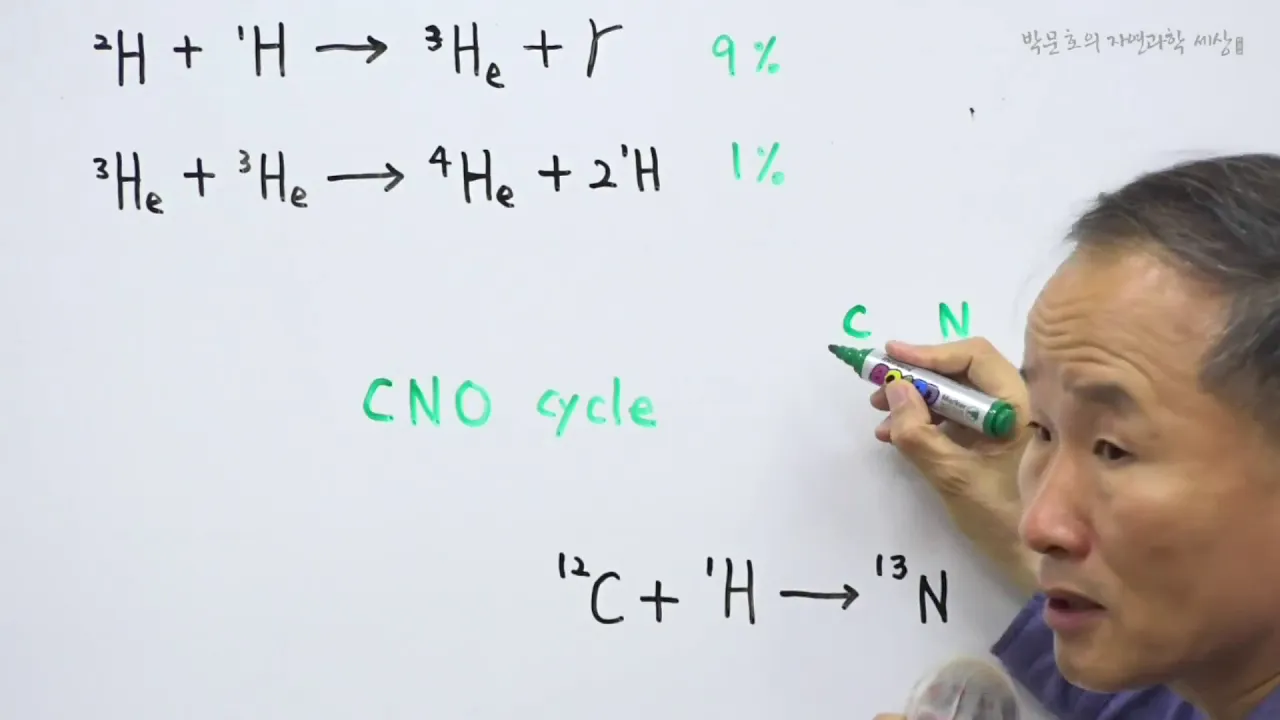 ²H + ¹H → ³He + γ 9%
박문호의 자연과학 세상
³He + ³He → ⁴He + 2¹H 1%
C N
CNO cycle
Marker
¹²C + ¹H → ¹³N